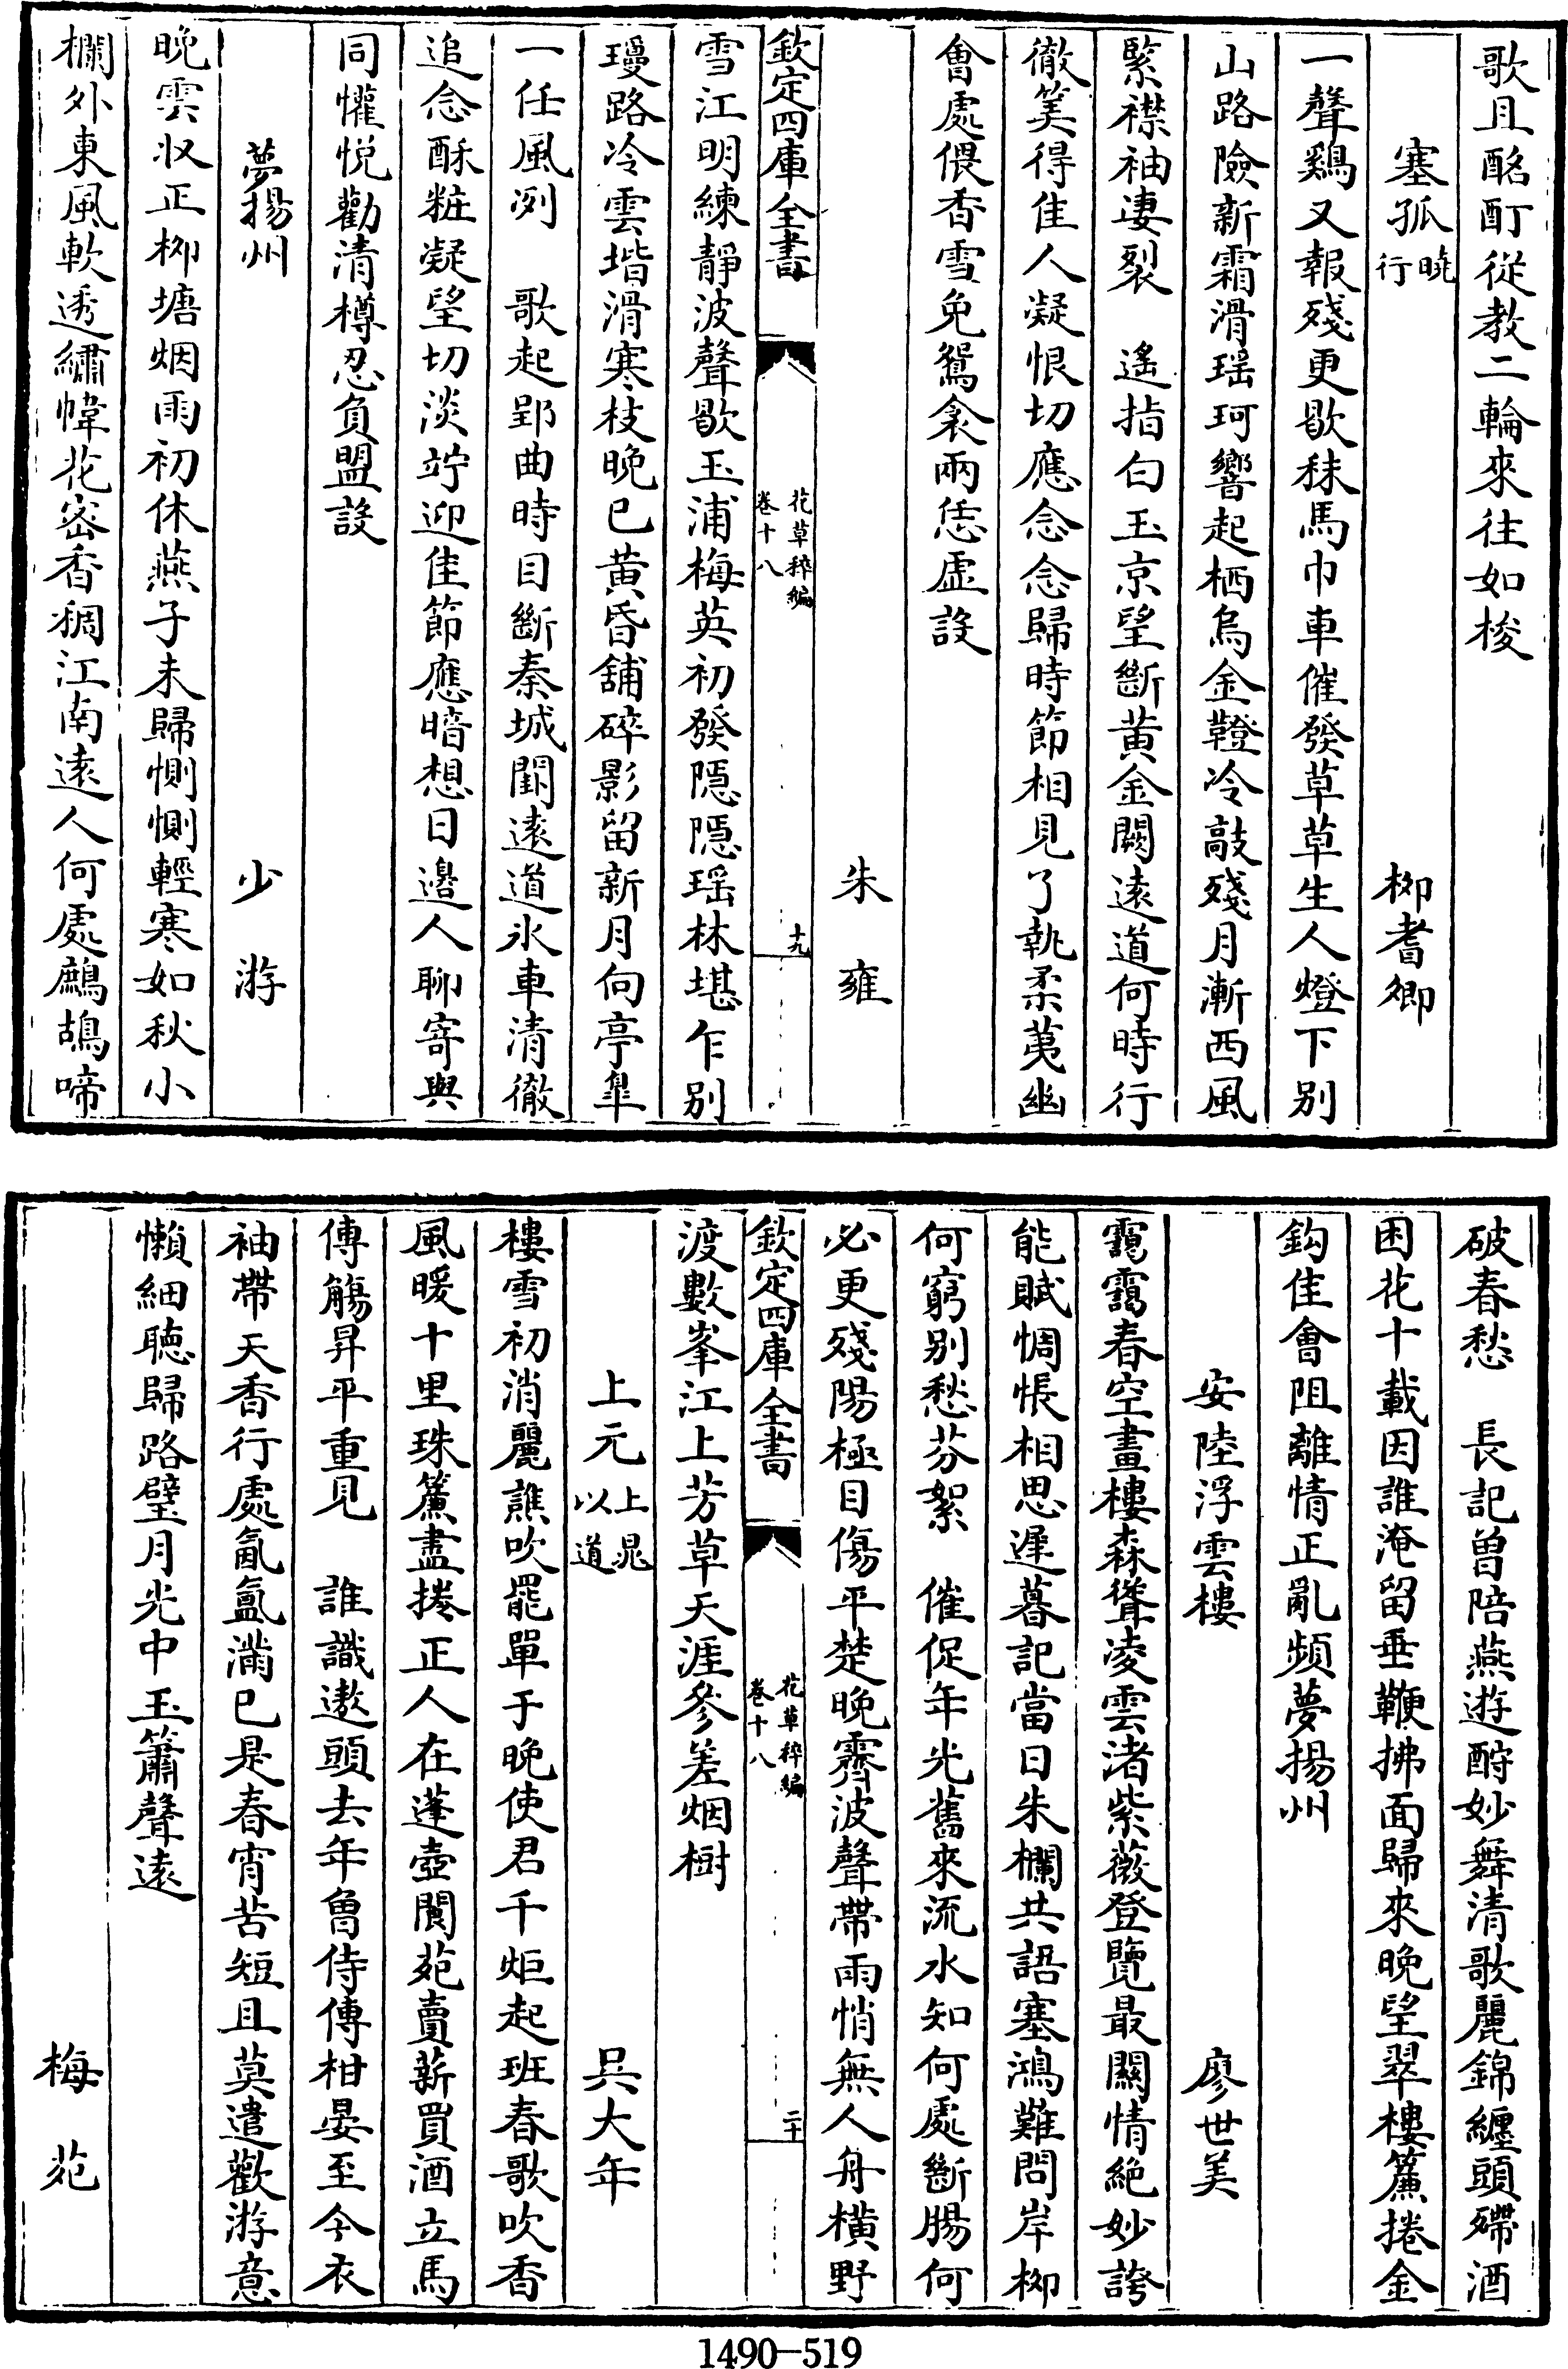 歌且酩酊從教二輪來往如梭
塞孤曉行　柳耆卿
一聲鷄又報殘更歇秣馬巾車催發草草生人燈下别
山路險新霜滑瑶珂響起栖烏金鐙冷敲殘月漸西風
緊襟袖凄裂　遙指白玉京望斷黄金闕逺道何時行
徹筭得佳人凝恨切應念念歸時節相見了執柔荑幽
會處偎香雪免鴛衾兩恁虛設
朱雍
欽定四庫全書　花草稡編卷十八　十九
雪江明練靜波聲歇玉浦梅英初發隱隱瑶林堪乍别
瓊路冷雲堦滑寒枝晚已黄昏舖碎影留新月向亭臯
一任風冽　歌起郢曲時目斷秦城闕逺道氷車清徹
追念酥粧凝望切淡竚迎佳節應暗想日邊人聊寄與
同懽悦勸清樽忍負盟設
夢揚州　少游
晚雲收正栁塘烟雨初休燕子未歸惻惻輕寒如秋小
欄外東風軟透繡幃花密香稠江南逺人何處鷓鴣啼
破春愁　長記曽陪燕遊酧妙舞清歌麗錦纏頭殢酒
困花十載因誰淹留垂鞭拂面歸來晚望翠樓簾捲金
鈎佳會阻離情正亂頻夢揚州
安陸浮雲樓　廖世美
靄靄春空畫樓森聳凌雲渚紫薇登覽最關情絶妙誇
能賦惆悵相思遲暮記當日朱欄共語塞鴻難問岸栁
何窮别愁芬絮　催促年光舊來流水知何處斷腸何
必更殘陽極目傷平楚晚霽波聲帶雨悄無人舟橫野
欽定四庫全書　花草稡編卷十八　二十
渡數峯江上芳草天涯參差烟樹
上元上晁以道　吳大年
樓雪初消麗譙吹罷單于晚使君千炬起班春歌吹香
風暖十里珠簾盡捲正人在蓬壺閬苑賣薪買酒立馬
傳觴昇平重見　誰識遨頭去年曽侍傳柑宴至今衣
袖帶天香行處氤氲滿已是春宵苦短且莫遣歡游意
懶細聴歸路璧月光中玉簫聲逺
梅苑
1490—519